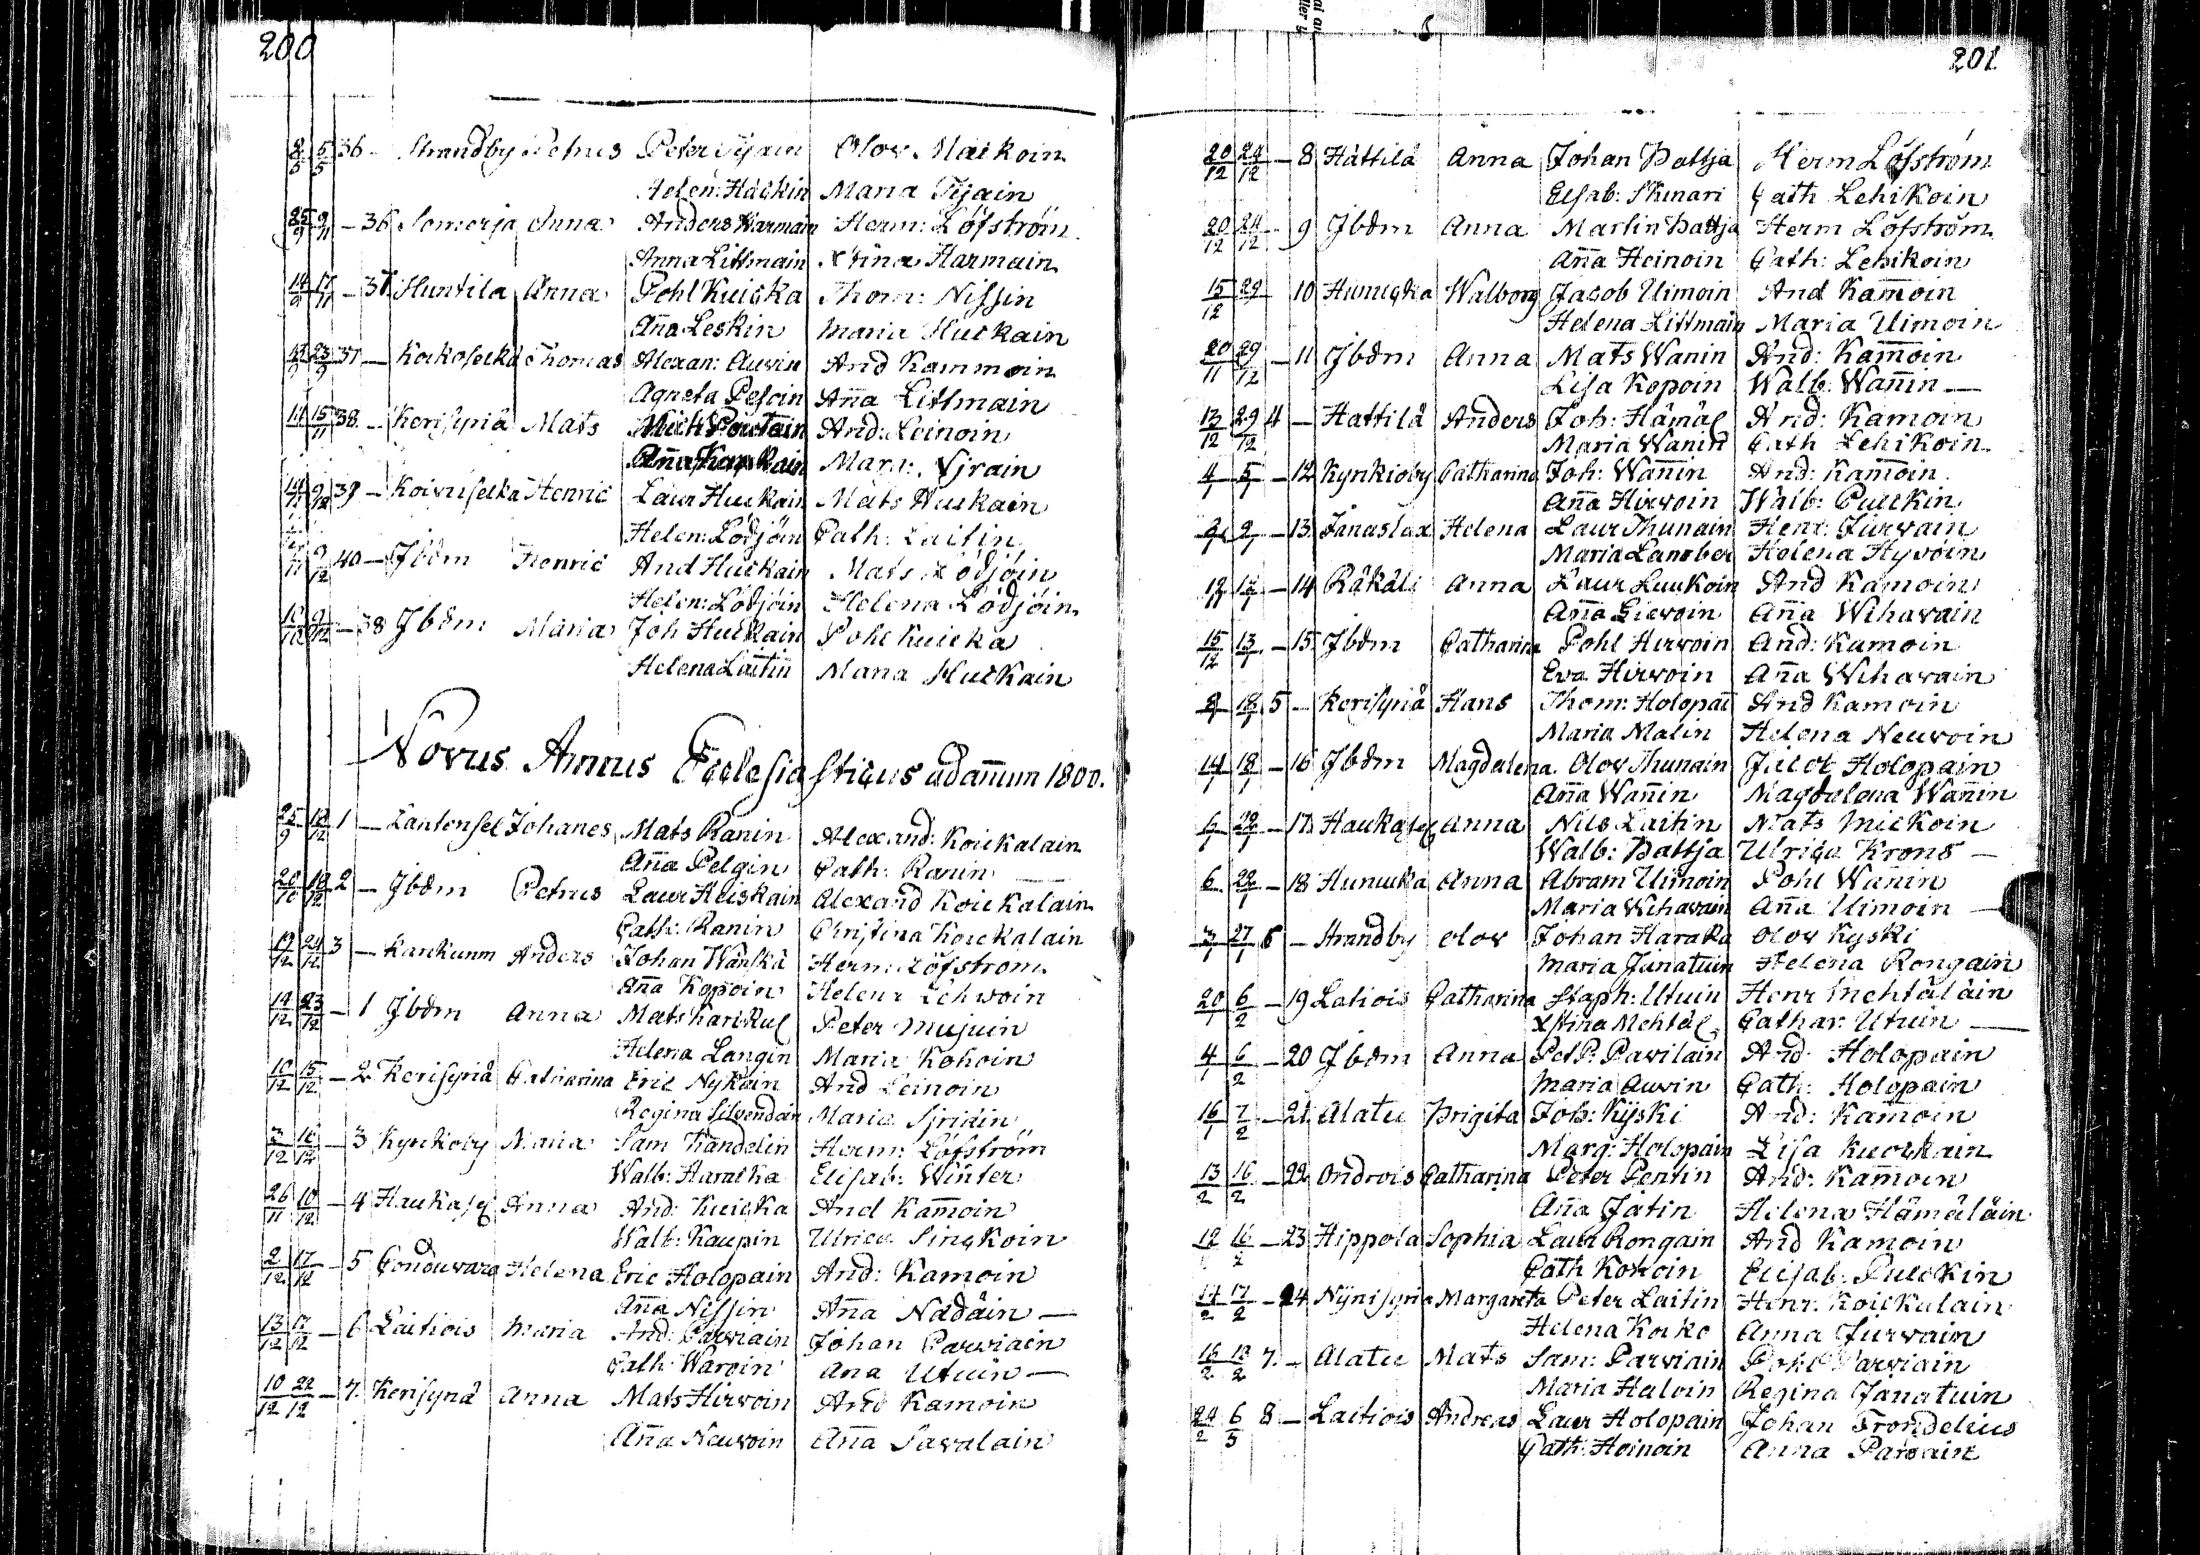 200
8/5 5/5 36 - Strandby Petrus Peter Tijain Olov Maikoin
Helen: Häckin Maria Tijain
25/9 9/11 - 36 Somerja Anna Anders Harmain Herm: Löfström
Anna Littmain Xtina Harmain
14/9 17/11 - 37 Huntila Anna Pohl Kuicka Thom: Nissin
Aña Leskin Maria Huckain
23/9 37 - Kockoselkä Thomas Alexan: Auvin And Kammoin
Agneta Pesoin Aña Littmain
15/11 38 - Kerisyriä Mats And: Leinoin
Mari: Sjrain
9/12 39 - Koivuselkä Henric Laur Huckain Mats Huckain
Helen: Lödjöin Cath: Laitin
9/12 40 - Jbdm Henric And Huckain Mats Lödjöin
Helen: Lödjöin Helena Lödjöin
9/12 - 38 Jbdm Maria Joh Huckain Pohl Kuicka
Helena Laitin Maria Huckain
Novus Annus Ecclesiasticus ad añum 1800.
25/9 12/12 1 - Lantonsel Johanes Mats Ranin Alexand: Koickalain
Aña Pelgin Cath: Ranin
26/10 19/12 2 - Jbdm Petrus Laur Heiskain Alexand Koickalain
Cath: Ranin Christina Koickalain
19/12 24/12 3 - Kankunm Anders Johan Wänskä Herm: Löfström
Aña Kopoin Helena Lehwoin
14/12 23/12 - 1 Jbdm Anna Mats Karikul Peter Mujuin
Helena Langin Maria Kohoin
10/12 15/12 - 2 Kerisyriä Catharina Eric Nykäin And Leinoin
Regina Silvendoin Maria Sjriäin
3/12 16/12 - 3 Kynkioby Maria Sam Trändelin Herm: Löfström
Walb: Haracka Elisab: Winter
26/11 10/12 - 4 Haukasel Anna And: Kuicka And Kam̄oin
Walb: Kaupin Ulrica Singkoin
2/12 17/12 - 5 Conduvara Helena Eric Holopain And: Kamoin
Aña Nissin Aña Nädäin —
13/12 17/12 - 6 Laitiois Maria And: Parviain Johan Parviain
Cath Waroin Ana Utuin —
10/12 22/12 - 7. Kerisyriä Anna Mats Hirvoin And Kamoin
Aña Neuvoin Aña Savalain
201
20/12 24/12 - 8 Hättilä Anna Johan Pattja Herm Löfström
Elsab: Skinari Cath Lehikoin
20/12 24/12 - 9 Jbdm Anna Martin Pattja Herm Löfström
Aña Heinoin Cath: Lehikoin
15/12 29 10 Hunucka Walborg Jacob Uimoin And Kam̄oin
Helena Littmain Maria Uimoin
20/11 29/12 - 11 Jbdm Anna Mats Wanin And: Kam̄oin
Lisa Kopoin Walb: Wañin —
13/12 29/12 4 - Hattilä Anders Joh: Hämäl And: Kamoin
Maria Wänin Cath Lehikoin
4/1 5/1 - 12 Kynkioby Catharina Joh: Wañin And: Kam̄oin
Aña Hirvoin Walb: Pulckin
2/1 9/1 - 13 Jänaslax Helena Laur Ihunain Henr: Jurvain
Maria Lamber Helena Hyvöin
12/11 12/1 - 14 Räkäli Anna Laur Luukoin And Kamoin
Aña Lievoin Aña Wihavain
15/12 13/1 - 15 Jbdm Catharina Pohl Hirvoin And: Kamoin
Eva Hirvoin Aña Wihavain
8/1 18/1 5 - Kerisyriä Hans Thom: Holopai And Kamoin
Maria Malin Helena Neuvoin
14/1 18/1 - 16 Jbdm Magdalena Olov Ihunain Jacob Holopain
Aña Wañin Magdalena Wañin
6/1 22/1 - 17 Haukasel Anna Nils Laitin Mats Mickoin
Walb: Pattja Ulrica Krons —
6 22/1 - 18 Hunucka Anna Abram Uimoin Pohl Wañin
Maria Wihavain Aña Uimoin —
3/1 27/1 6 - Strandby Olov Johan Haraka Olov Kyski
Maria Junatuin Helena Rongain
20/1 6/2 - 19 Latiois Catharina Staph: Utuin Henr Mehtäläin
Xstina Mehtäl Cathar: Utuin —
4/1 6/2 - 20 Jbdm Anna Pet P: Pavilain And: Holopain
Maria Auvin Cath: Holopain
16/1 7/2 - 21 Alatu Brigita Joh: Kijski And: Kam̄oin
Marg: Holopain Lisa Kuockain
13/2 16/2 - 22 Ondrois Catharina Peter Pentin And: Kam̄oin
Aña Jätin Helena Hämäläin
12 16/2 - 23 Hippola Sophia Laur Rongain And Kamoin
Cath Kokoin Elisab: Pulckin
14/2 17/2 - 24 Nÿnisyriä Margareta Peter Laitin Henr: Koickalain
Helena Kocko Anna Jurvain
16/2 18/2 7. - Alatu Mats Sam: Parviain Pohl Parviain
Maria Haloin Regina Janatuin
24/2 6/3 8 - Laitiois Andreas Laur Holopain Johan Frondelius
Cath: Hoinoin Anna Parvain